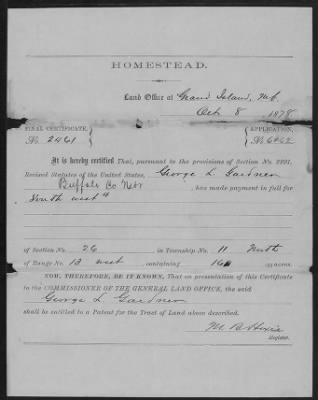 HOMESTEAD.
Land Office at Grand Island, Neb.
Oct 8 1878
FINAL CERTIFICATE, APPLICATION,
No. 2461 No.
It is hereby certified That, pursuant to the provisions of Section No. 2291,
Revised Statutes of the United States, George L Gardner
Buffalo Co Nebr , has made payment in full for
South west 4
of Section No. 26 in Township No. 11 North
of Range No. 13 west containing 160 acres.
NOW, THEREFORE, BE IT KNOWN, That on presentation of this Certificate
to the COMMISSIONER OF THE GENERAL LAND OFFICE, the said
George L Gardner
shall be entitled to a Patent for the Tract of Land above described.
M B Hoxie
Register.